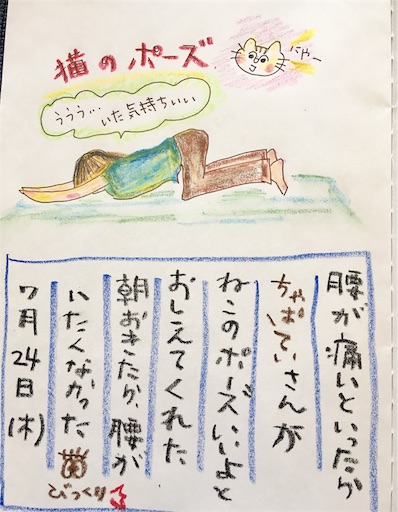 猫のポーズ
にゃー
ううう…
いた気持ちいい
腰が痛いといったら
ちゃぱてぃさんが
ねこのポーズいいよと
おしえてくれた
朝おきたら、腰が
いたくなかった
びっくり
7月24日(木)